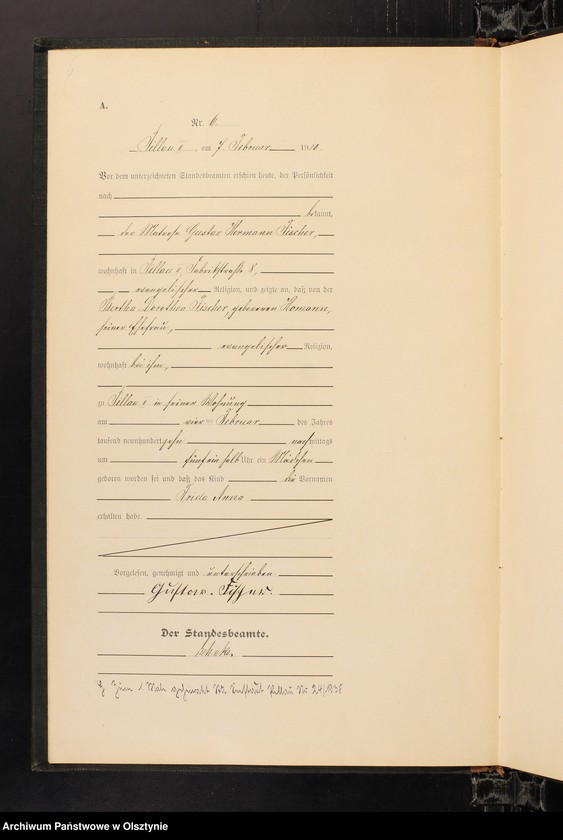 A.
Nr. 6
Pillau I, am 7 Februar 1910
Vor dem unterzeichneten Standesbeamten erschien heute, der Persönlichkeit
nach
bekannt,
der Matrose Gustav Hermann Fischer,
wohnhaft in Pillau I, Fabrikstraße 8,
evangelischer Religion, und zeigte an, daß von der
Bertha Dorothea Fischer, geborenen Homann,
seiner Ehefrau,
evangelischer Religion,
wohnhaft bei ihm,
zu Pillau I in seiner Wohnung
am vier ten Februar des Jahres
tausend neunhundert zehn nachmittags
um fünfeinhalb Uhr ein Mädchen
geboren worden sei und daß das Kind die Vornamen
Frida Anna
erhalten habe.
Vorgelesen, genehmigt und unterschrieben
Gustav. Fischer.
Der Standesbeamte.
Pillau Nr 24/1938
Archiwum Państwowe w Olsztynie